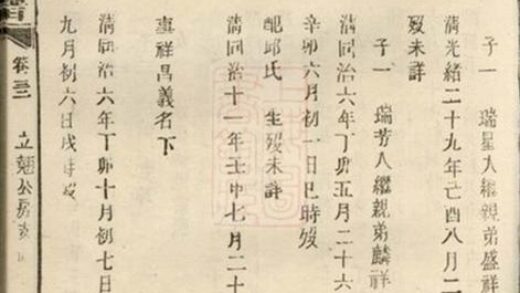 子一 瑞星入繼親弟盛祥
清光緒二十九年己酉八月二
歿未詳
子一 瑞芳入繼親弟麟祥
清同治六年丁卯五月二十六
辛卯六月初一日巳時歿
配邱氏 生歿未詳
清同治十一年壬申七月二十
祥昌義名下
清同治六年丁卯十月初七日
九月初六日戌時歿
卷三 立翹公房